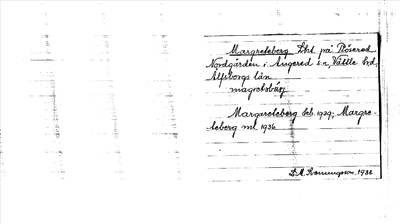 Margreteberg Lht. på Rösered
Nordgården i Angered sn, Vättle hd,
Älfsborgs län
magretebärj
Margreteberg beb. 1929; Margre-
teberg ml 1936
1936